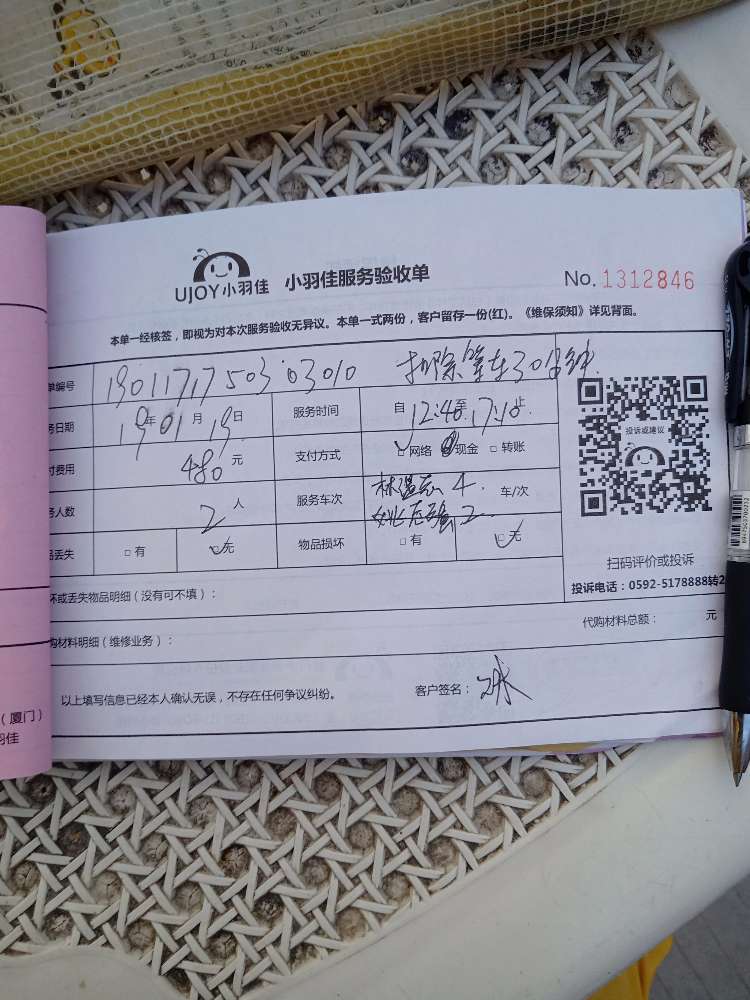 UJOY小羽佳 小羽佳服务验收单 No. 1312846
本单一经核签，即视为对本次服务验收无异议。本单一式两份，客户留存一份(红)。《维保须知》详见背面。
单编号 19011717503 03010 扣除等车30分钟
务日期 19年01月19日 服务时间 自12:40至17:10止
付费用 480元 支付方式 □ 网络 现金 □ 转账
务人数 2人 服务车次 林 4 姚 2 车/次
品丢失 □ 有 □ 无 物品损坏 □ 有 □ 无
坏或丢失物品明细（没有可不填）：
购材料明细（维修业务）： 代购材料总额： 元
以上填写信息已经本人确认无误，不存在任何争议纠纷。 客户签名：
投诉或建议
扫码评价或投诉
投诉电话：0592-5178888转2
（厦门）
羽佳